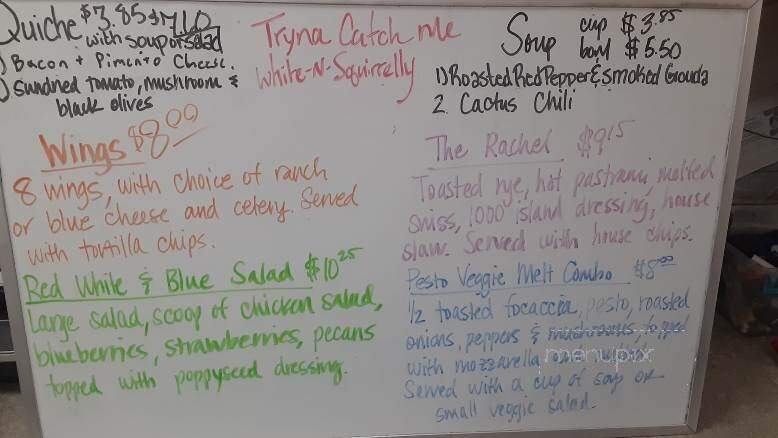 Quiche $3.85 $7.10
with soup or salad
1) Bacon + Pimento Cheese.
) Sundried tomato, mushroom &
black olives
Tryna Catch me
White-N-Squirrelly
Soup cup $3.85
bowl $5.50
1) Roasted Red Pepper & smoked Gouda
2. Cactus Chili
Wings $8.00
8 wings, with choice of ranch
or blue cheese and celery. Served
with tortilla chips.
The Rachel $9.15
Toasted rye, hot pastrami, melted
swiss, 1000 island dressing, house
slaw. Served with house chips.
Red White & Blue Salad $10.25
Large salad, scoop of chicken salad,
blueberries, strawberries, pecans
topped with poppyseed dressing.
Pesto Veggie Melt Combo $8.00
1/2 toasted focaccia, pesto, roasted
onions, peppers & mushrooms, topped
with mozzarella
Served with a cup of soup or
small veggie salad.
menupix